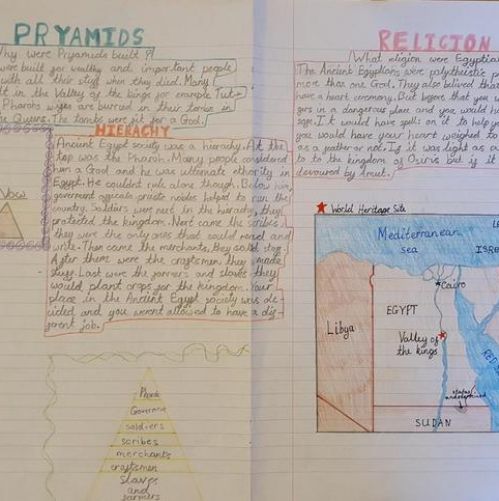 PRYAMIDS
Why were Pryamids built?
were built for wealthy and important people
with all their stuff when they died. Many
in the Valley of the kings for example Tut
Pharohs wives are burried in their tombs in
the Queens. The tombs were fit for a God.
HIERACHY
Ancient Egypt society was a hierachy. At the
top was the Pharoh. Many people considered
him a God and he was
Egypt. He couldnt rule alone though. Below him,
government officals priests nobles helped to run the
country. Soldiers were next in the hierachy, they
protected the kingdom. Next came the scribes
they were the only ones that could read and
write. Then came the merchants, they sold
After there were the craftsmen they made
stuff. Last were the farmers and slaves they
would plant crops for the kingdom. Your
place in the Ancient Egypt society was de-
cided and you werent allowed to have a dif-
ferent job.
Now
Pharoh
soldiers
scribes
merchants
craftsmen
slaves
and
farmers
RELIGION
What religion were Egyptian
The Ancient Egyptians were polytheistic
more than one God. They also belived that
have a heart ceremony. But before that you
in a dangerous place and you would
It would have spells on it to help you
you would have your heart weighed to
as a feather or not. If it was light as
to to the kingdom of Osiris but if it
devoured by Amut.
World Heritage Site
Mediterranean
sea
ISRE
Cairo
EGYPT
Libya
Valley of
the kings
RED
SUDAN